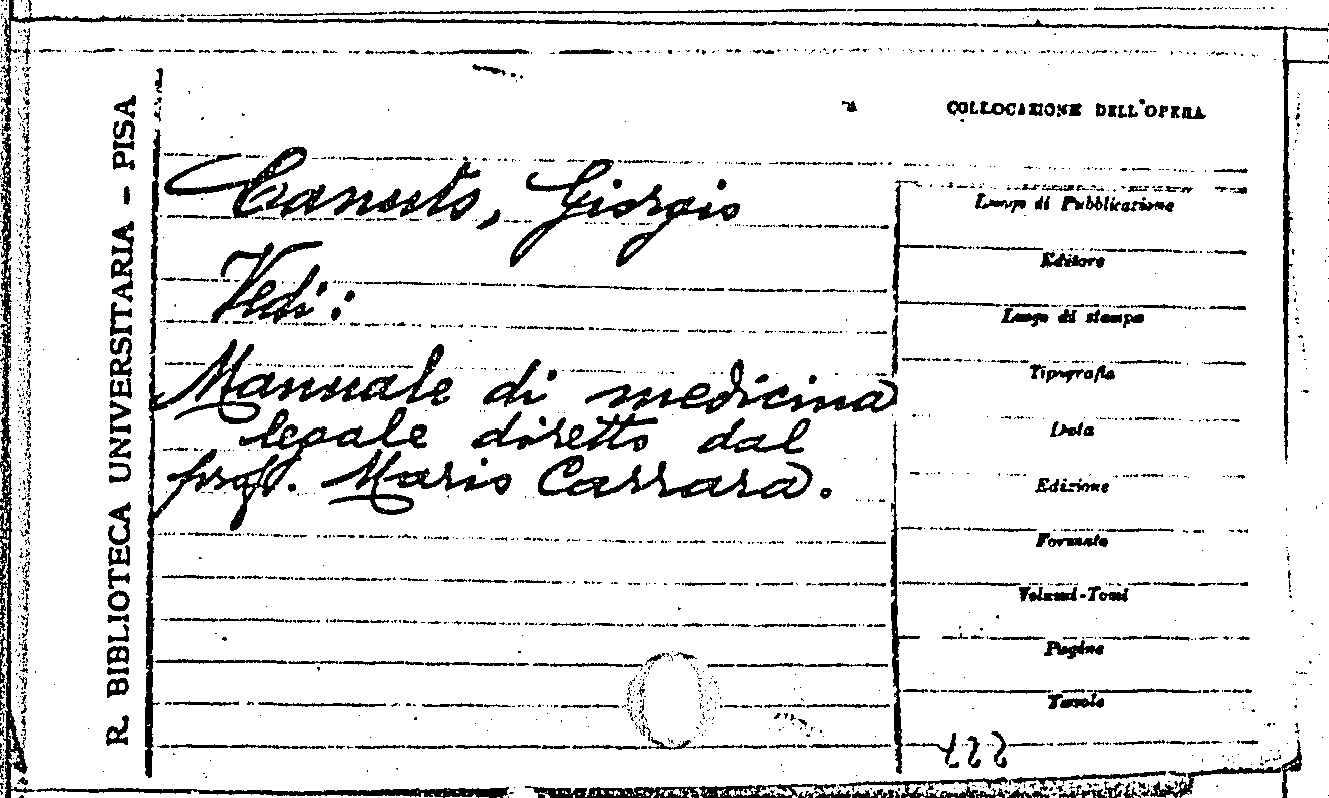 R. BIBLIOTECA UNIVERSITARIA – PISA
Canuto, Giorgio
Vedi:
Manuale di medicina
legale diretto dal
prof. Mario Carrara.
COLLOCAZIONE DELL'OPERA
Luogo di Pubblicazione
Editore
Luogo di stampa
Tipografia
Data
Edizione
Formato
Volumi-Tomi
Pagine
Tavole